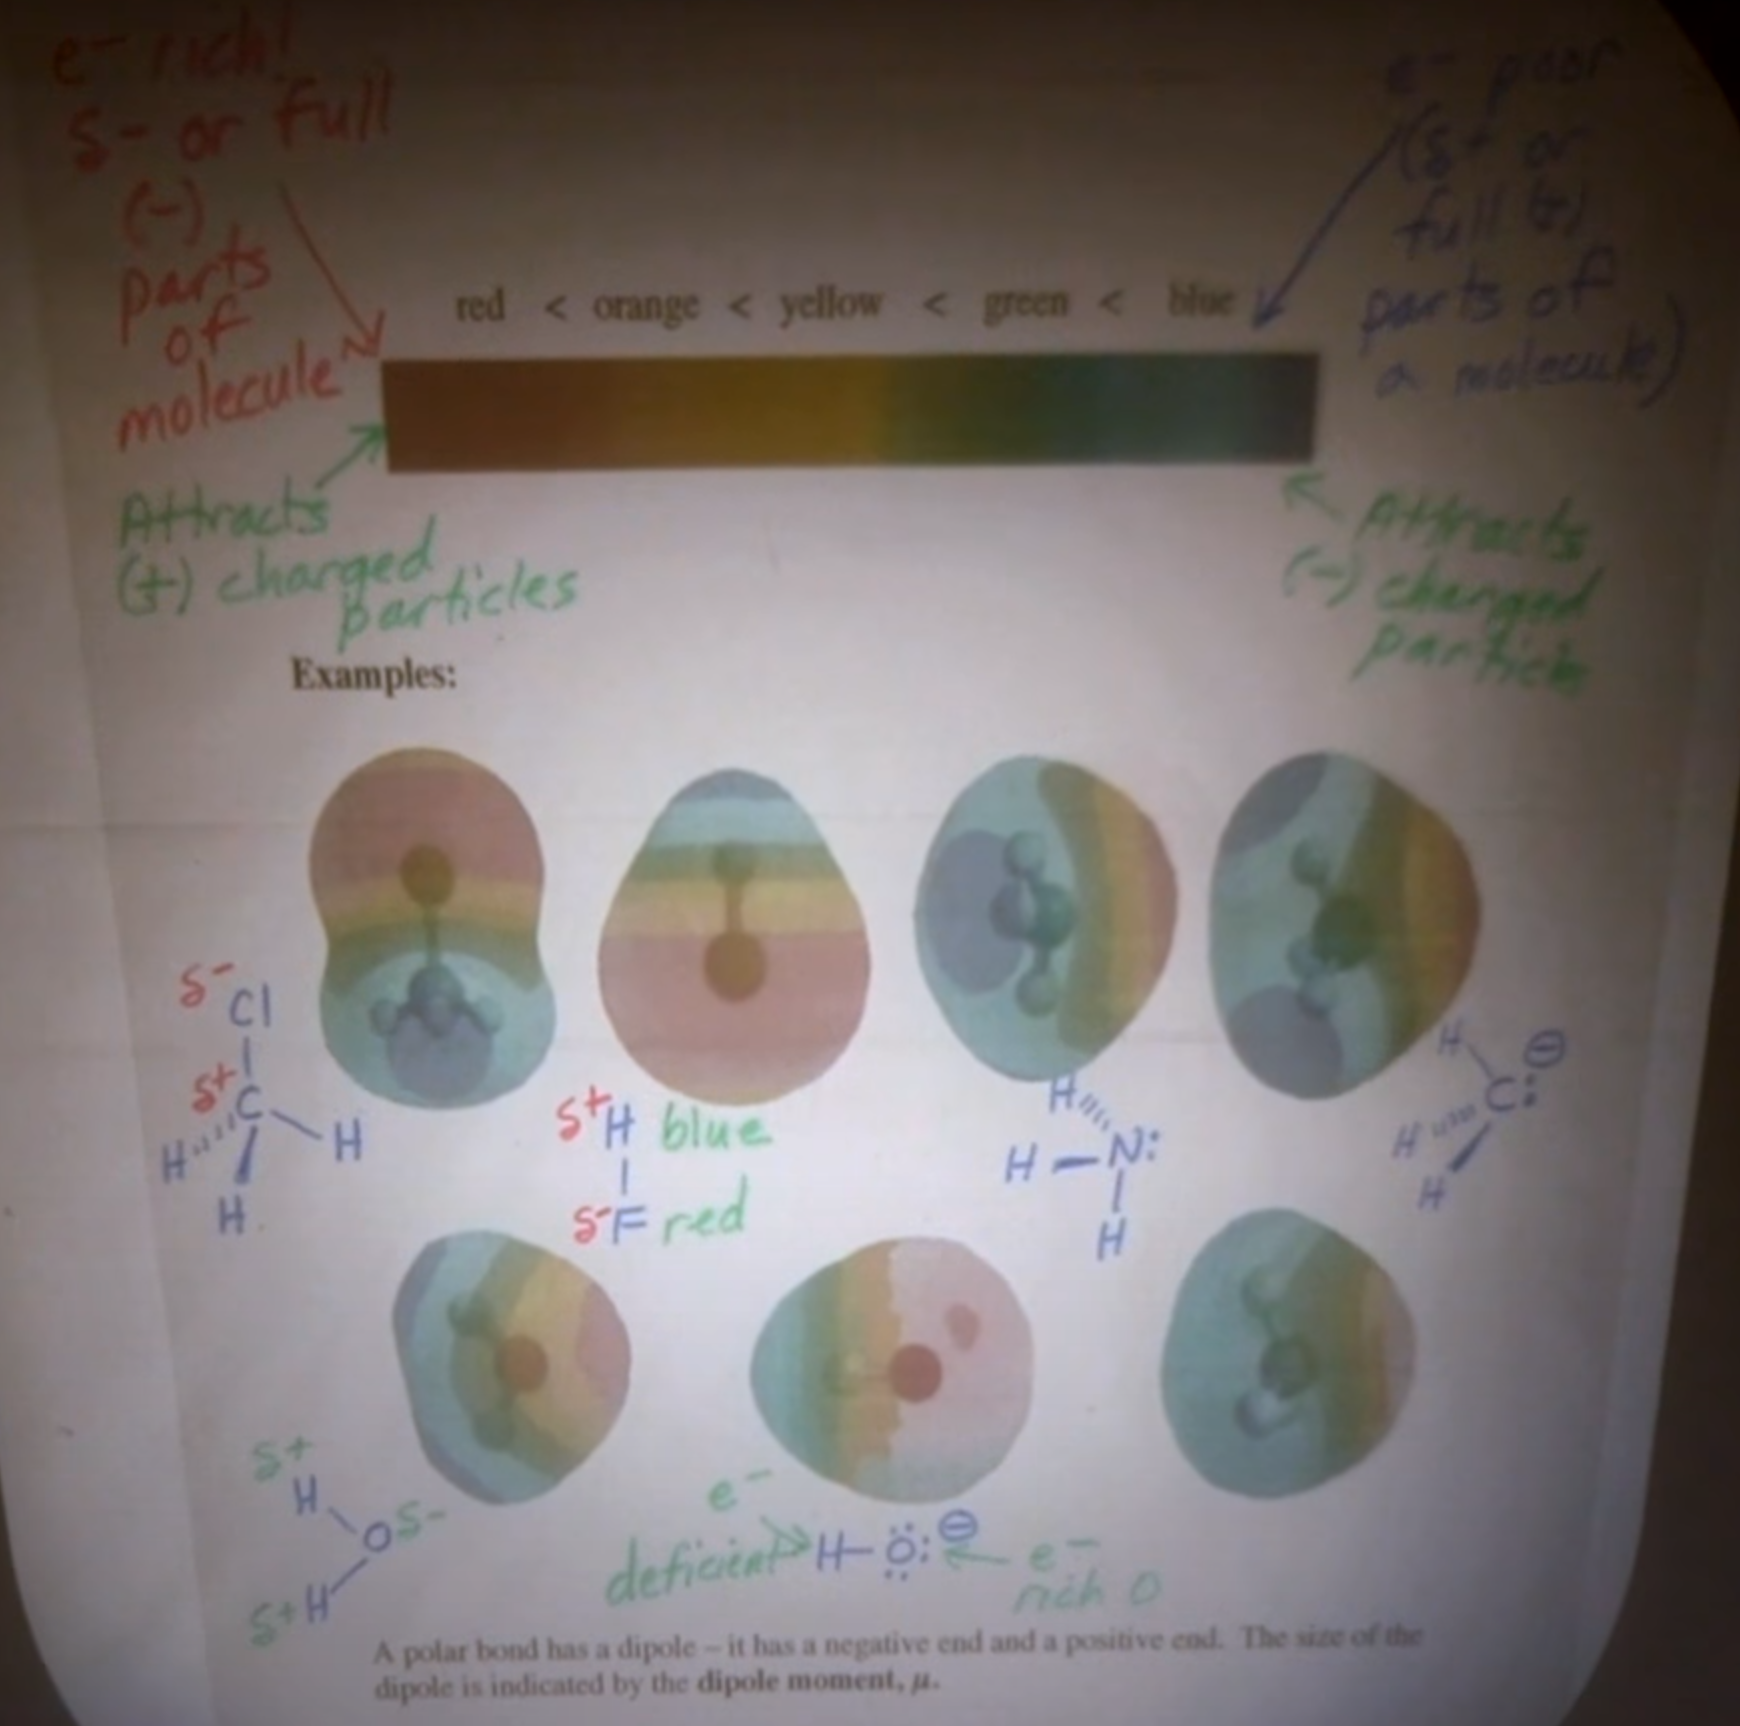 e- rich!
δ- or full
(-)
parts
of
molecule
e- poor
(δ+ or
full (+)
parts of
a molecule)
red < orange < yellow < green < blue
Attracts
(+) charged
particles
Attracts
(-) charged
particles
Examples:
δ-
Cl
δ+
C
H
H
H
δ+ H blue
δ- F red
H
H N:
H
H
C: ⊖
H
H
δ+
H
O δ-
δ+ H
e-
deficient
H-Ö: ⊖
e-
rich O
A polar bond has a dipole – it has a negative end and a positive end. The size of the
dipole is indicated by the dipole moment, μ.